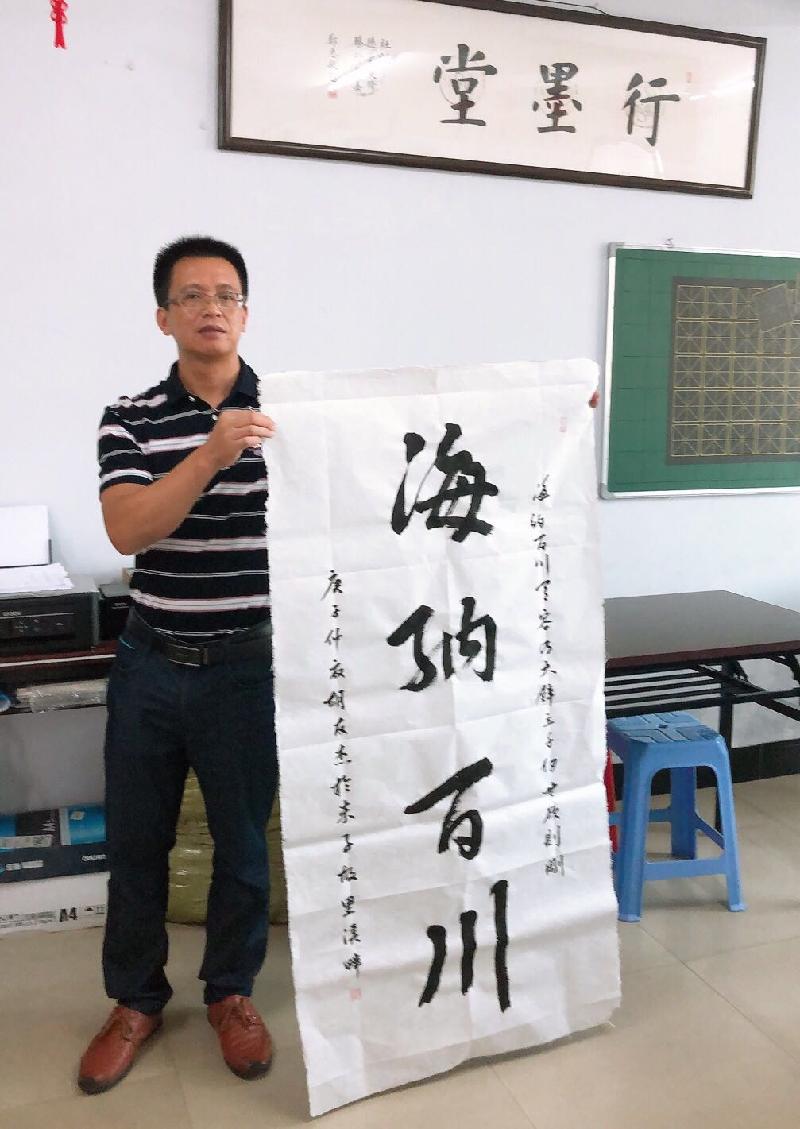 行墨堂
海纳百川有容乃大壁立千仞无欲则刚
海纳百川
庚子胡友杰於朱子故里溪畔
EPSON
A4